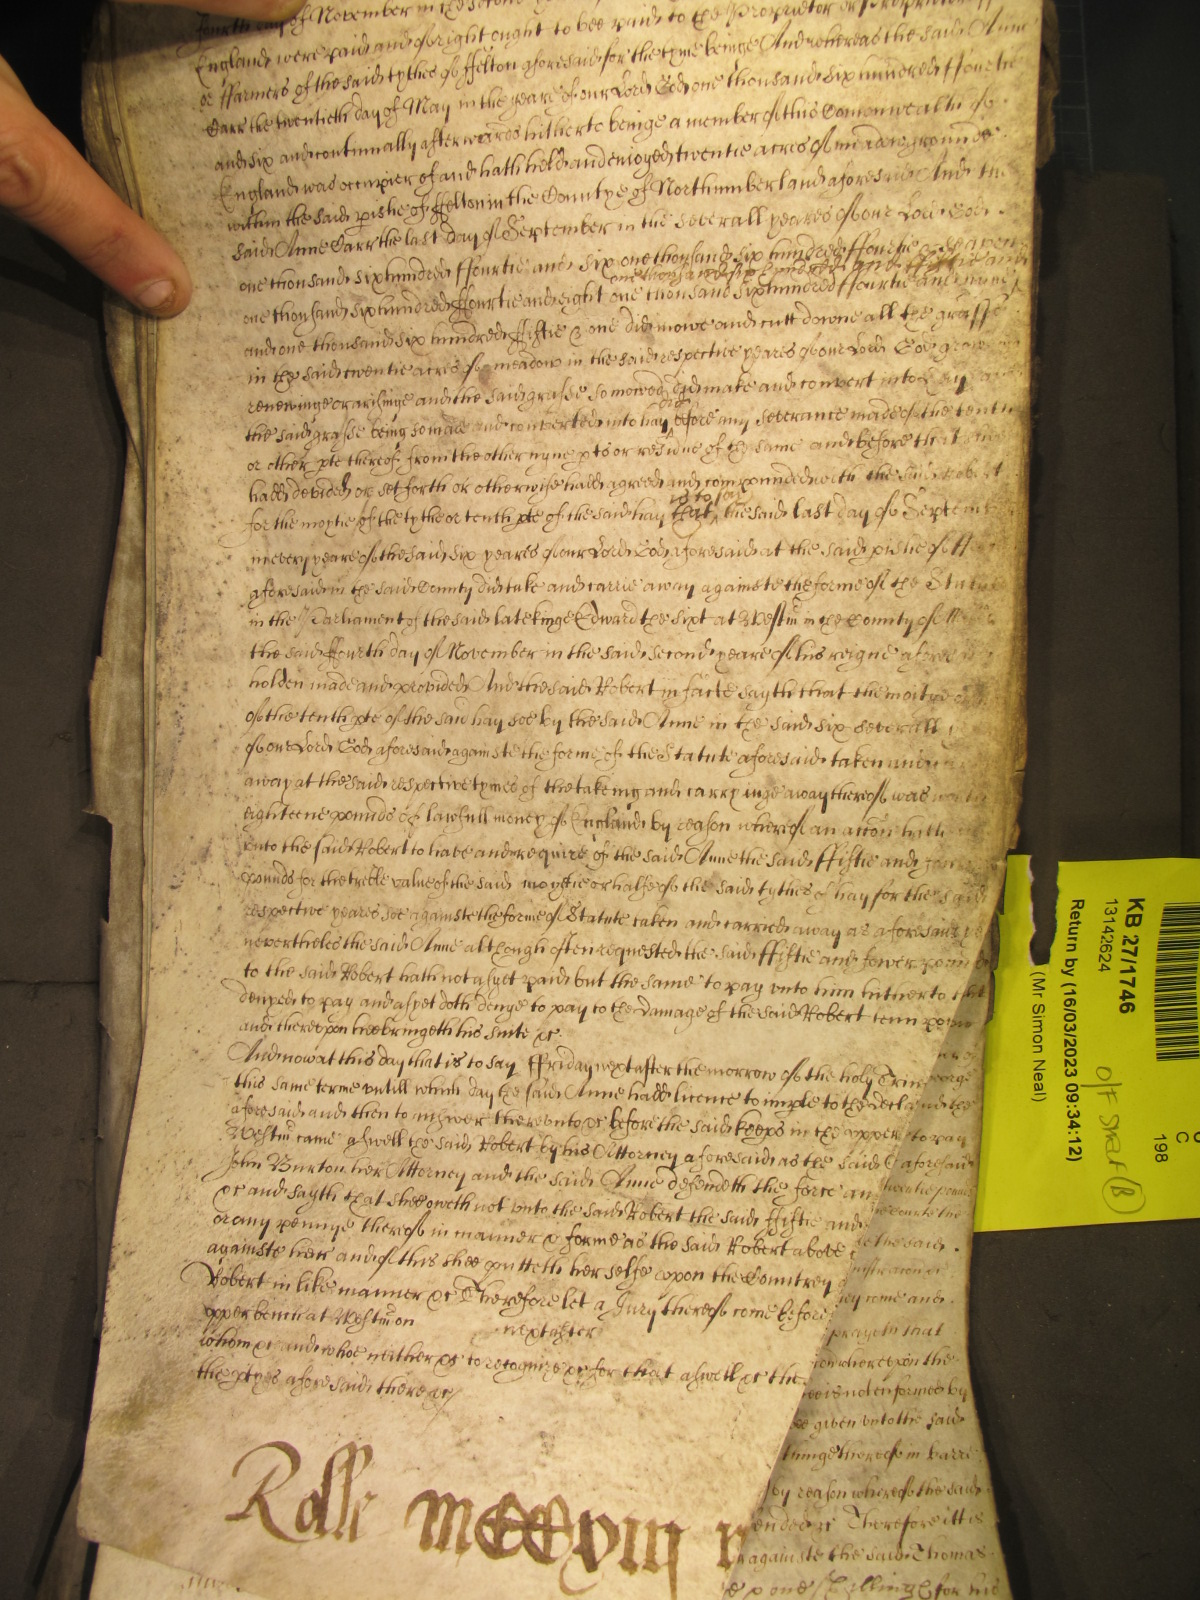 fourth day of November in the second
England were paid and of right ought to bee paid to the Proprietor or Proprietors
or ffarmers of the said tythes of ffelton aforesaid for the tyme beinge And whereas the said Anne
Carr the twentieth day of May in the yeare of our Lord God one thousand six hundred ffourtie
and six and continually afterwards hitherto beinge a member of this Comonwealth of
England was occupier of and hath held and enioyed twentie acres of meadow grounde
within the said pishe of ffelton in the Countye of Northumberland aforesaid And the
said Anne Carr the last day of September in the severall yeares of our Lord God
one thousand six hundred ffourtie and six one thousand six hundred ffourtie & seaven
one thousand six hundred ffourtie and eight one thousand six hundred ffourtie and nine
one thousand six hundred and ffiftie and
and one thousand six hundred ffiftie & one did mowe and cutt downe all the grasse
in the said twentie acres of meadow in the said respective yeares of our Lord God
renewinge or arisinge and the said grasse so mowed did make and convert into hay and
the said grasse being so made and converted into hay before any severance made of the tenth
or other pte thereof from the other nyne pts or residue of the same and before that
hadd devided or set forth or otherwise hadd agreed and compounded with the said Robert
for the moytie of the tythe or tenth pte of the said hay that is to say the said last day of Septem
in every yeare of the said six yeares of our Lord God aforesaid at the said pishe of ff
aforesaid in the said County did take and carrie away againste the forme of the Statute
in the Parliament of the said late kinge Edward the sixt at Westm in the County of M
the said ffourth day of November in the said second yeare of his reigne afores
holden made and provided And the said Robert in facte sayth that the moitye
of the tenth pte of the said hay soe by the said Anne in the said six severall
of our Lord God aforesaid againste the forme of the Statute aforesaid taken and
away at the said respective tymes of the takeing and carryinge away thereof was
eighteene pounds of lawfull money of England by reason whereof an accon
unto the said Robert to have and require of the said Anne the said ffiftie and
pounds for the treble value of the said moytie or halfe of the said tythes of hay for the said
respective yeares soe againste the forme of Statute taken and carried away as aforesaid
nevertheles the said Anne although often requested the said ffiftie and fower pounds
to the said Robert hath not as yet paid but the same to pay unto him hitherto
denyed to pay and as yet doth denye to pay to the damage of the said Robert tenn
and thereupon hee bringeth his suite &c
And now at this day that is to say ffriday next after the morrow of the holy Trin
this same terme untill which day the said Anne hadd licence to imple to the decl
aforesaid and then to answer thereunto &c before the said keeps in the upper
Westm came aswell the said Robert by his Attorney aforesaid as the said
John Burton her Attorney and the said Anne defendeth the force an
&c and sayth that shee oweth not unto the said Robert the said ffiftie and
or any pennye thereof in manner & forme as the said Robert above
againste her and of this shee putteth her selfe upon the Countrey
Robert in like manner &c Therefore let a Jury thereof come before
upper bench at Westm on next after
whom &c and whoe neither &c to recognize &c for that aswell &c the
the ptyes aforesaid there &c
Rolle MCCxviij
to pay
aforesaid
the Courte the
the said
prayeth that
whereupon the
is not enformed by
given unto the said
thinge thereof in barre
by reason whereof the said
Therefore itt is
againste the said Thomas
one shillinge for his
KB 27/1746
13142624
Return by (16/03/2023 09:34:12)
(Mr Simon Neal)
198
C